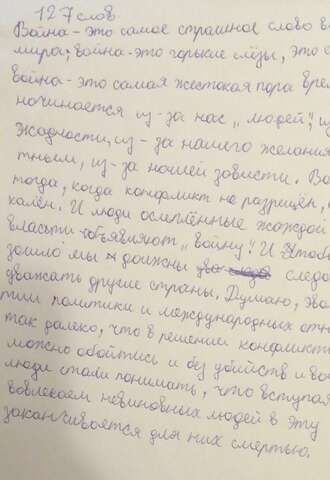 127 слов
Война - это самое страшное слово в
мира; война - это горькие слёзы, это с
война - это самая жестокая пора вре
начинается из-за нас „людей”, и
жадности, из-за нашего желания
тным, из-за нашей зависти. Во
тогда, когда конфликт не разрешён,
кален. И люди ослеплённые жаждой
власти объявляют „войну”. И чтобы
зошло мы должны следо
уважать другие страны. Думаю, эво
ции политики и международных отн
так далеко, что в решении конфликт
можно обойтись и без убийств и во
люди стали понимать, что вступая
вовлекаем невиновных людей в эту
заканчивается для них смертью.